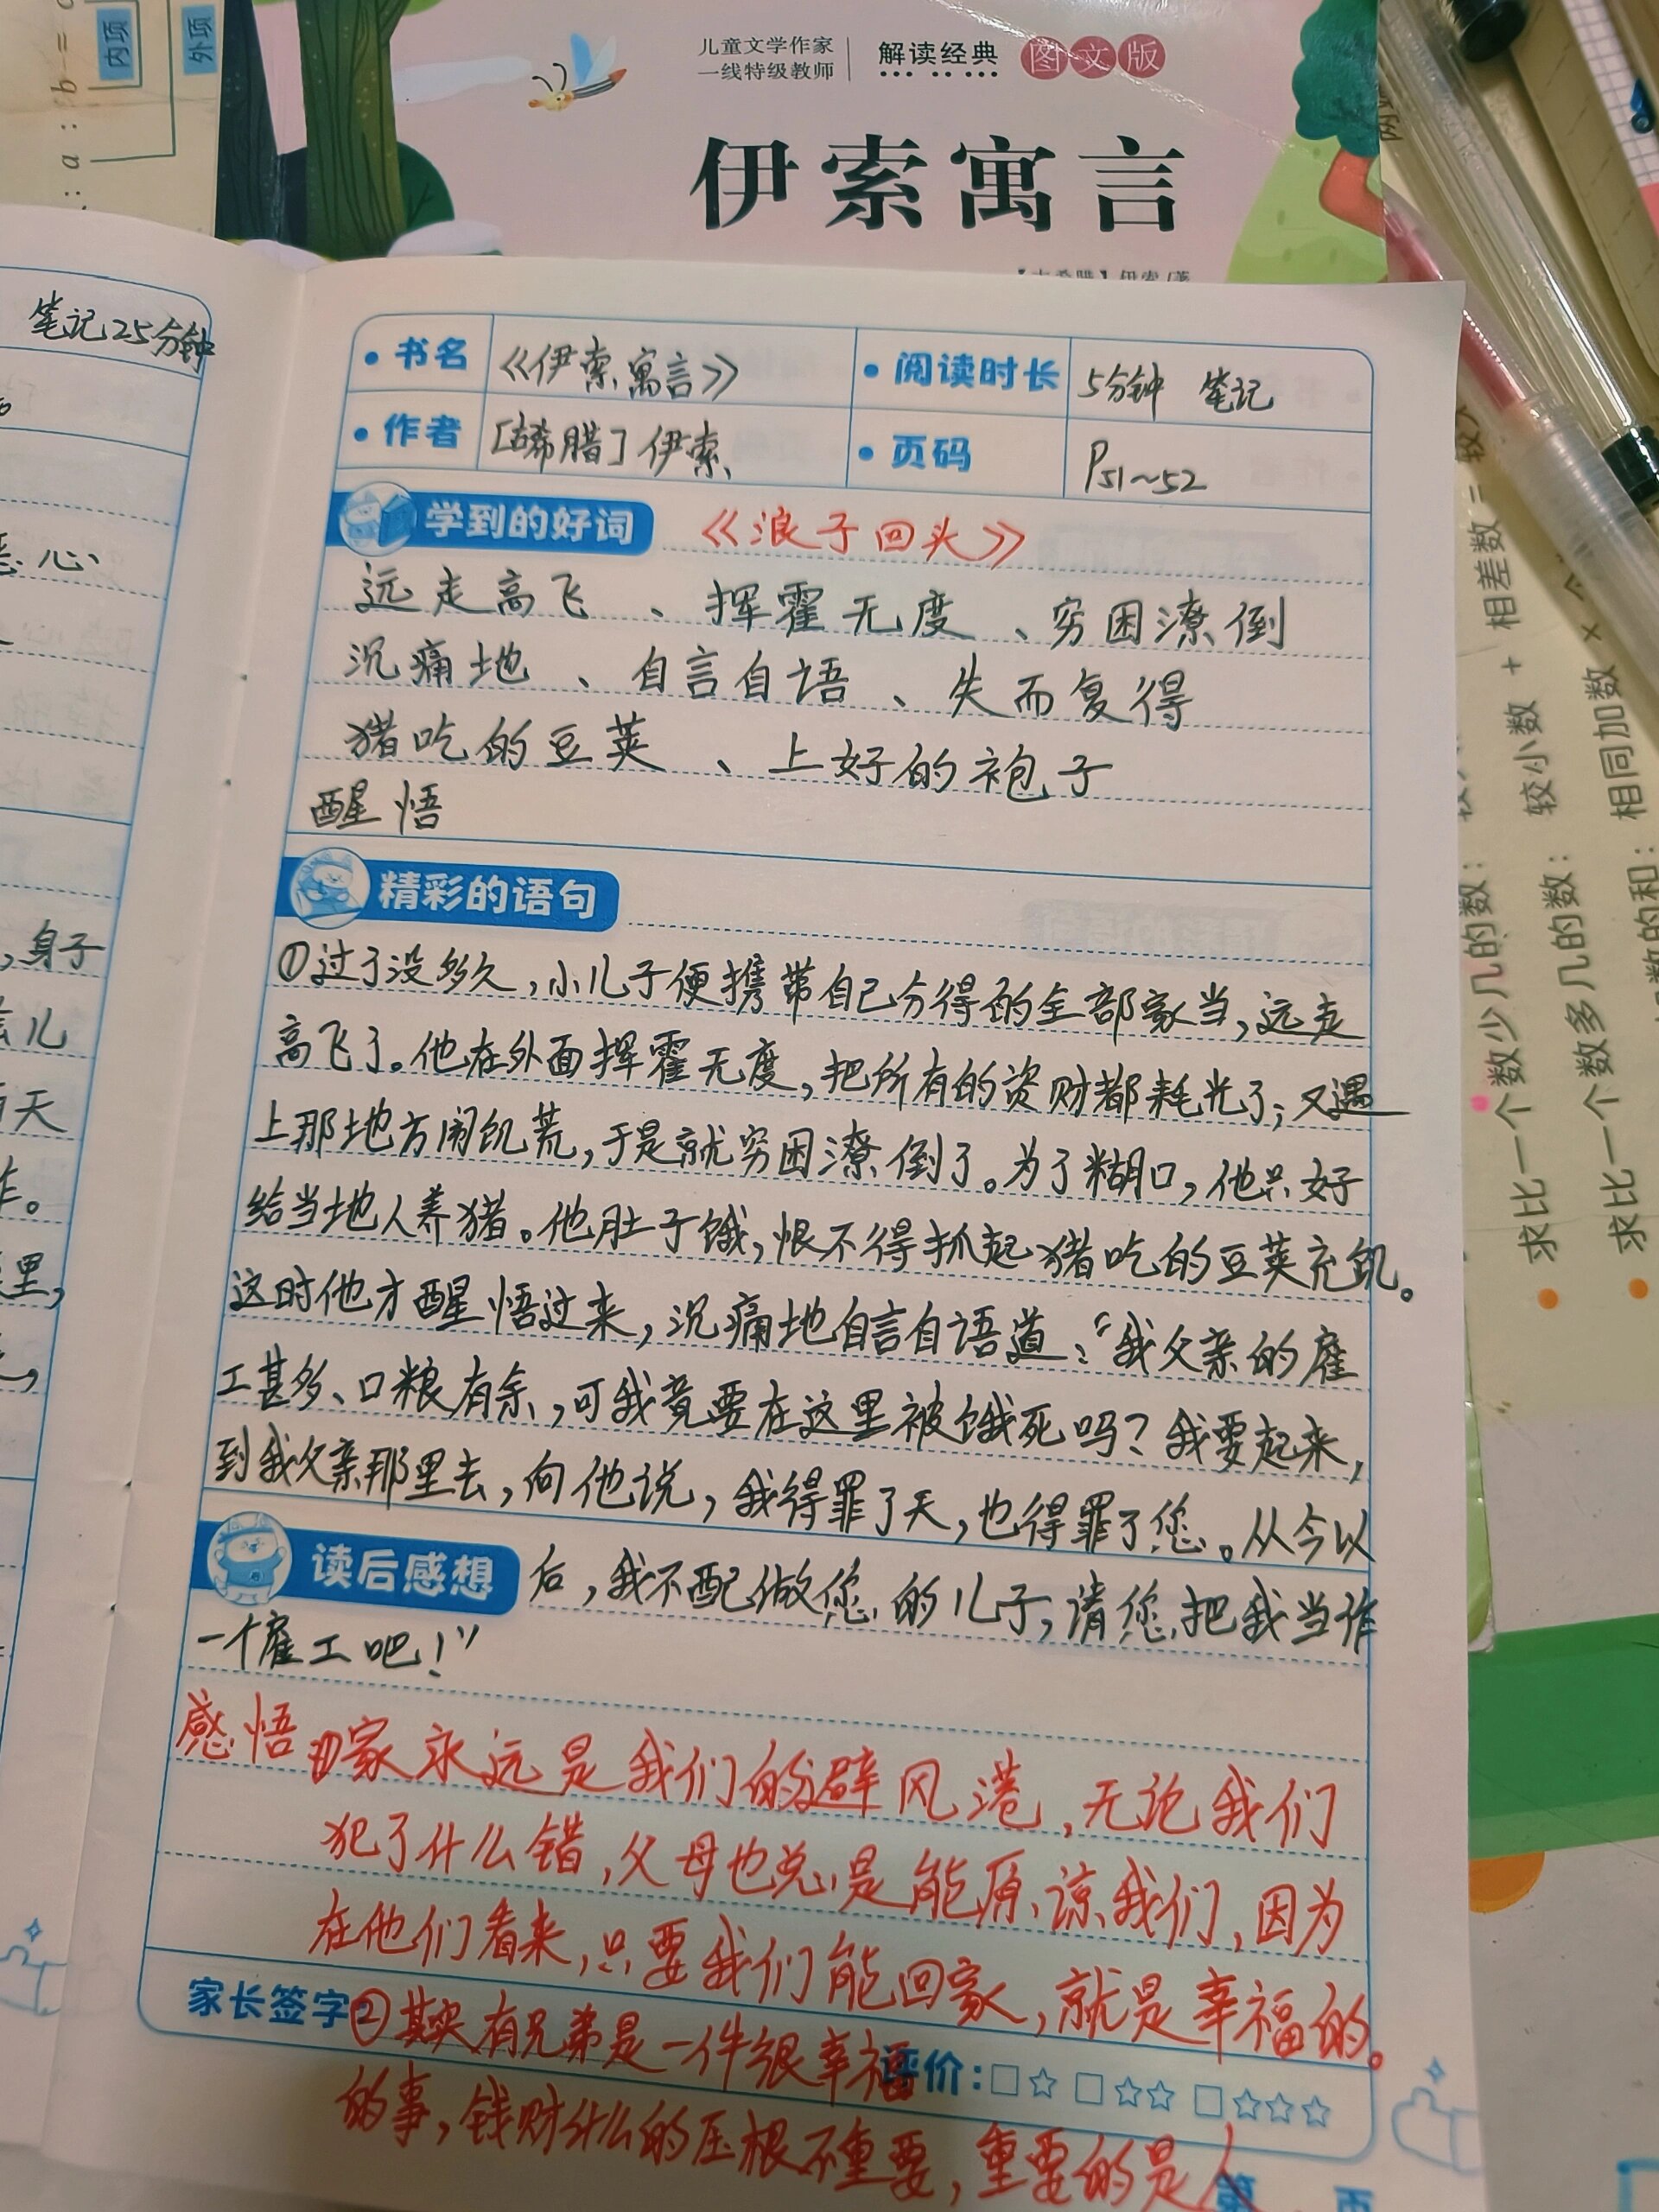 内项
外项
a : b =
儿童文学作家
一线特级教师
解读经典
图文版
伊索寓言
笔记25分钟
书名
《伊索寓言》
阅读时长
5分钟 笔记
作者
[古希腊]伊索
页码
P51~52
学到的好词
《浪子回头》
远走高飞、挥霍无度、穷困潦倒
沉痛地、自言自语、失而复得
猪吃的豆荚、上好的袍子
醒悟
精彩的语句
①过了没多久,小儿子便携带自己分得的全部家当,远走
高飞了。他在外面挥霍无度,把所有的资财都耗光了;又遇
上那地方闹饥荒,于是就穷困潦倒了。为了糊口,他只好
给当地人养猪。他肚子饿,恨不得抓起猪吃的豆荚充饥。
这时他才醒悟过来,沉痛地自言自语道:“我父亲的雇
工甚多、口粮有余,可我竟要在这里被饿死吗?我要起来,
到我父亲那里去,向他说,我得罪了天,也得罪了您。从今以
读后感想
后,我不配做您的儿子,请您把我当作
一个雇工吧!”
感悟①家永远是我们的避风港,无论我们
犯了什么错,父母也总是能原谅我们,因为
在他们看来,只要我们能回家,就是幸福的。
家长签字
②其实有兄弟是一件很幸福
评价:□☆ □☆☆ □☆☆☆
的事,钱财什么的压根不重要,重要的是人
第 页
心
,身子
儿
天
。
里,
相差数 =
较小数 +
相同加数 ×
求比一个数少几的数:
求比一个数多几的数: